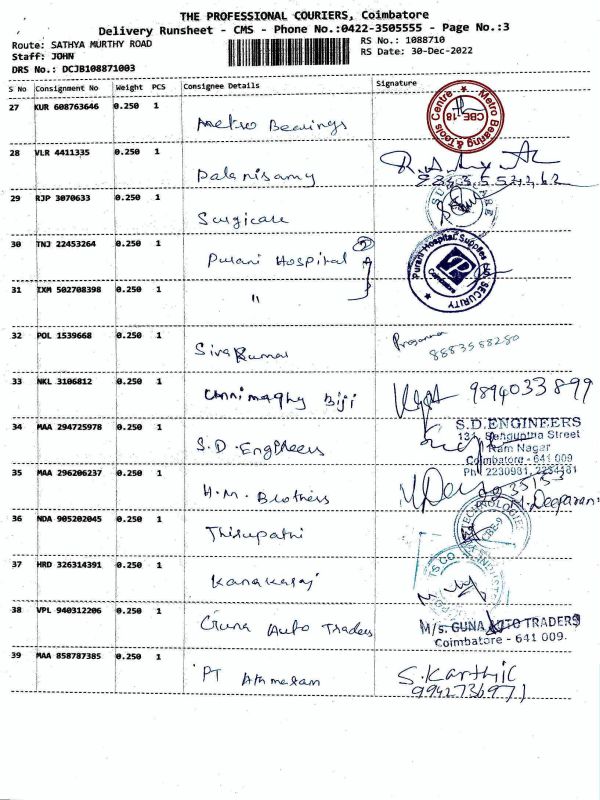 THE PROFESSIONAL COURIERS, Coimbatore
Delivery Runsheet - CMS - Phone No.:0422-3505555 - Page No.:3
Route: SATHYA MURTHY ROAD
RS No.: 1088710
Staff: JOHN
RS Date: 30-Dec-2022
DRS No.: DCJB108871003
S No Consignment No Weight PCS Consignee Details Signature
27 KUR 608763646 0.250 1 Metro Bearings
Metro Bearing & Tools Centre CBE-18
28 VLR 4411335 0.250 1 Palanisamy
29 RJP 3070633 0.250 1 Surgicare
30 TNJ 22453264 0.250 1 Purani Hospital 2
Purani Hospital Supplies
SECURITY
31 IXM 502708398 0.250 1 "
32 POL 1539668 0.250 1 Sivakumar Prasanna
8883588280
33 NKL 3106812 0.250 1 Unnimaghy Biji 9894033899
34 MAA 294725978 0.250 1 S.D. Engineers
S.D.ENGINEERS
131, Senguptha Street
Ram Nagar
Coimbatore - 641 009
Ph: 2230981, 2234481
35 MAA 296206237 0.250 1 H.M. Brothers
36 NDA 905202045 0.250 1 Thirupathi
TECHNOLOGIES
CBE-9
37 HRD 326314391 0.250 1 Kanakaraj
38 VPL 940312206 0.250 1 Guna Auto Traders
M/s. GUNA AUTO TRADERS
Coimbatore - 641 009.
39 MAA 858787385 0.250 1 PT Athmaram S. Karthic
9942736971